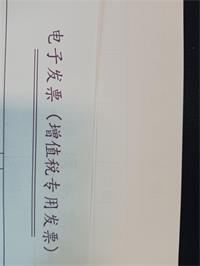 电子发票（增值税专用发票）